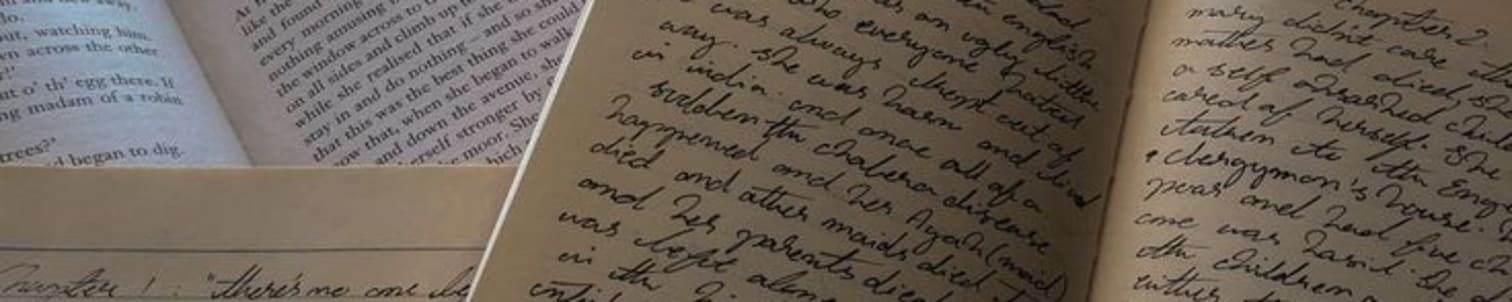 lo.
out, watching him.
wn across the other
ut o' th' egg there. If
ng madam of a robin
trees?"
began to dig.
At
like the
and found
every morning
nothing amusing to
the window across to
on all sides and climb up
while she realised that if she
stay in and do nothing – and so she
that this was the best thing she could
ow that, when she began to walk
and down the avenue, she
erself stronger by
moor. She
which
Chapter 1 : "there's no one le
an english
was an ugly little
who everyone hated
was always kept out of
way. She was born and lived
in india. and once all of a
sudden the cholera disease
happened and her Ayah (maid)
died and other maids died
and her parents died
was left alone
in the
Chapter 2.
mary didn't care
mother had died, she
a self absorbed
cared of herself. She
taken to the
clergyman's house.
poor and had five
one was basil. She
the children